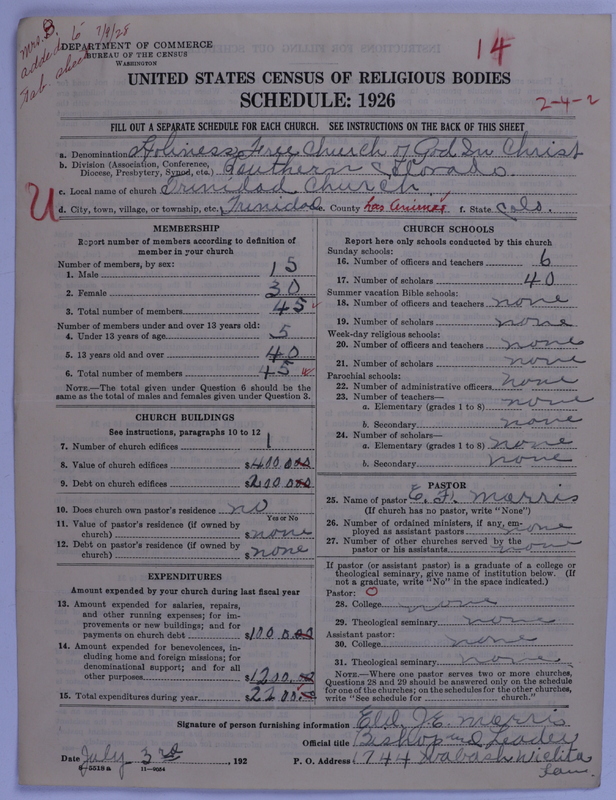 Mrs. B.
added to 7/9/28
Tab sheet
DEPARTMENT OF COMMERCE
BUREAU OF THE CENSUS
WASHINGTON
14
UNITED STATES CENSUS OF RELIGIOUS BODIES
SCHEDULE: 1926
2-4-2
FILL OUT A SEPARATE SCHEDULE FOR EACH CHURCH. SEE INSTRUCTIONS ON THE BACK OF THIS SHEET
a. Denomination Holiness Free Church of God In Christ
b. Division (Association, Conference, Diocese, Presbytery, Synod, etc.) Southern Colorado
c. Local name of church Trinidad Church
U
d. City, town, village, or township, etc. Trinidad e. County Las Animas f. State Colo.
MEMBERSHIP
Report number of members according to definition of
member in your church
Number of members, by sex:
1. Male 15
2. Female 30
3. Total number of members 45
Number of members under and over 13 years old:
4. Under 13 years of age 5
5. 13 years old and over 40
6. Total number of members 45
NOTE.—The total given under Question 6 should be the
same as the total of males and females given under Question 3.
CHURCH BUILDINGS
See instructions, paragraphs 10 to 12
7. Number of church edifices 1
8. Value of church edifices $400.00
9. Debt on church edifices $200.00
10. Does church own pastor's residence no
Yes or No
11. Value of pastor's residence (if owned by
church) $none
12. Debt on pastor's residence (if owned by
church) $none
EXPENDITURES
Amount expended by your church during last fiscal year
13. Amount expended for salaries, repairs,
and other running expenses; for im-
provements or new buildings; and for
payments on church debt $100.00
14. Amount expended for benevolences, in-
cluding home and foreign missions; for
denominational support; and for all
other purposes
15. Total expenditures during year
CHURCH SCHOOLS
Report here only schools conducted by this church
Sunday schools:
16. Number of officers and teachers 6
17. Number of scholars 40
Summer vacation Bible schools:
18. Number of officers and teachers none
19. Number of scholars none
Week-day religious schools:
20. Number of officers and teachers none
21. Number of scholars none
Parochial schools:
22. Number of administrative officers none
23. Number of teachers—
a. Elementary (grades 1 to 8) none
b. Secondary none
24. Number of scholars—
a. Elementary (grades 1 to 8) none
b. Secondary none
PASTOR
25. Name of pastor E. F. Morris
(If church has no pastor, write "None")
26. Number of ordained ministers, if any, em-
ployed as assistant pastors none
27. Number of other churches served by the
pastor or his assistants none
If pastor (or assistant pastor) is a graduate of a college or
theological seminary, give name of institution below. (If
not a graduate, write "No" in the space indicated.)
Pastor: O
28. College none
29. Theological seminary none
Assistant pastor:
30. College none
31. Theological seminary none
NOTE.—Where one pastor serves two or more churches,
Questions 28 and 29 should be answered only on the schedule
for one of the churches; on the schedules for the other churches,
write "See schedule for ........ church."
Signature of person furnishing information Eld. J. E. Morris
Official title Bishop and Leader
Date July 3rd, 192 P. O. Address 1744 Wabash Wichita
Kans.
8—5518a 11—9084